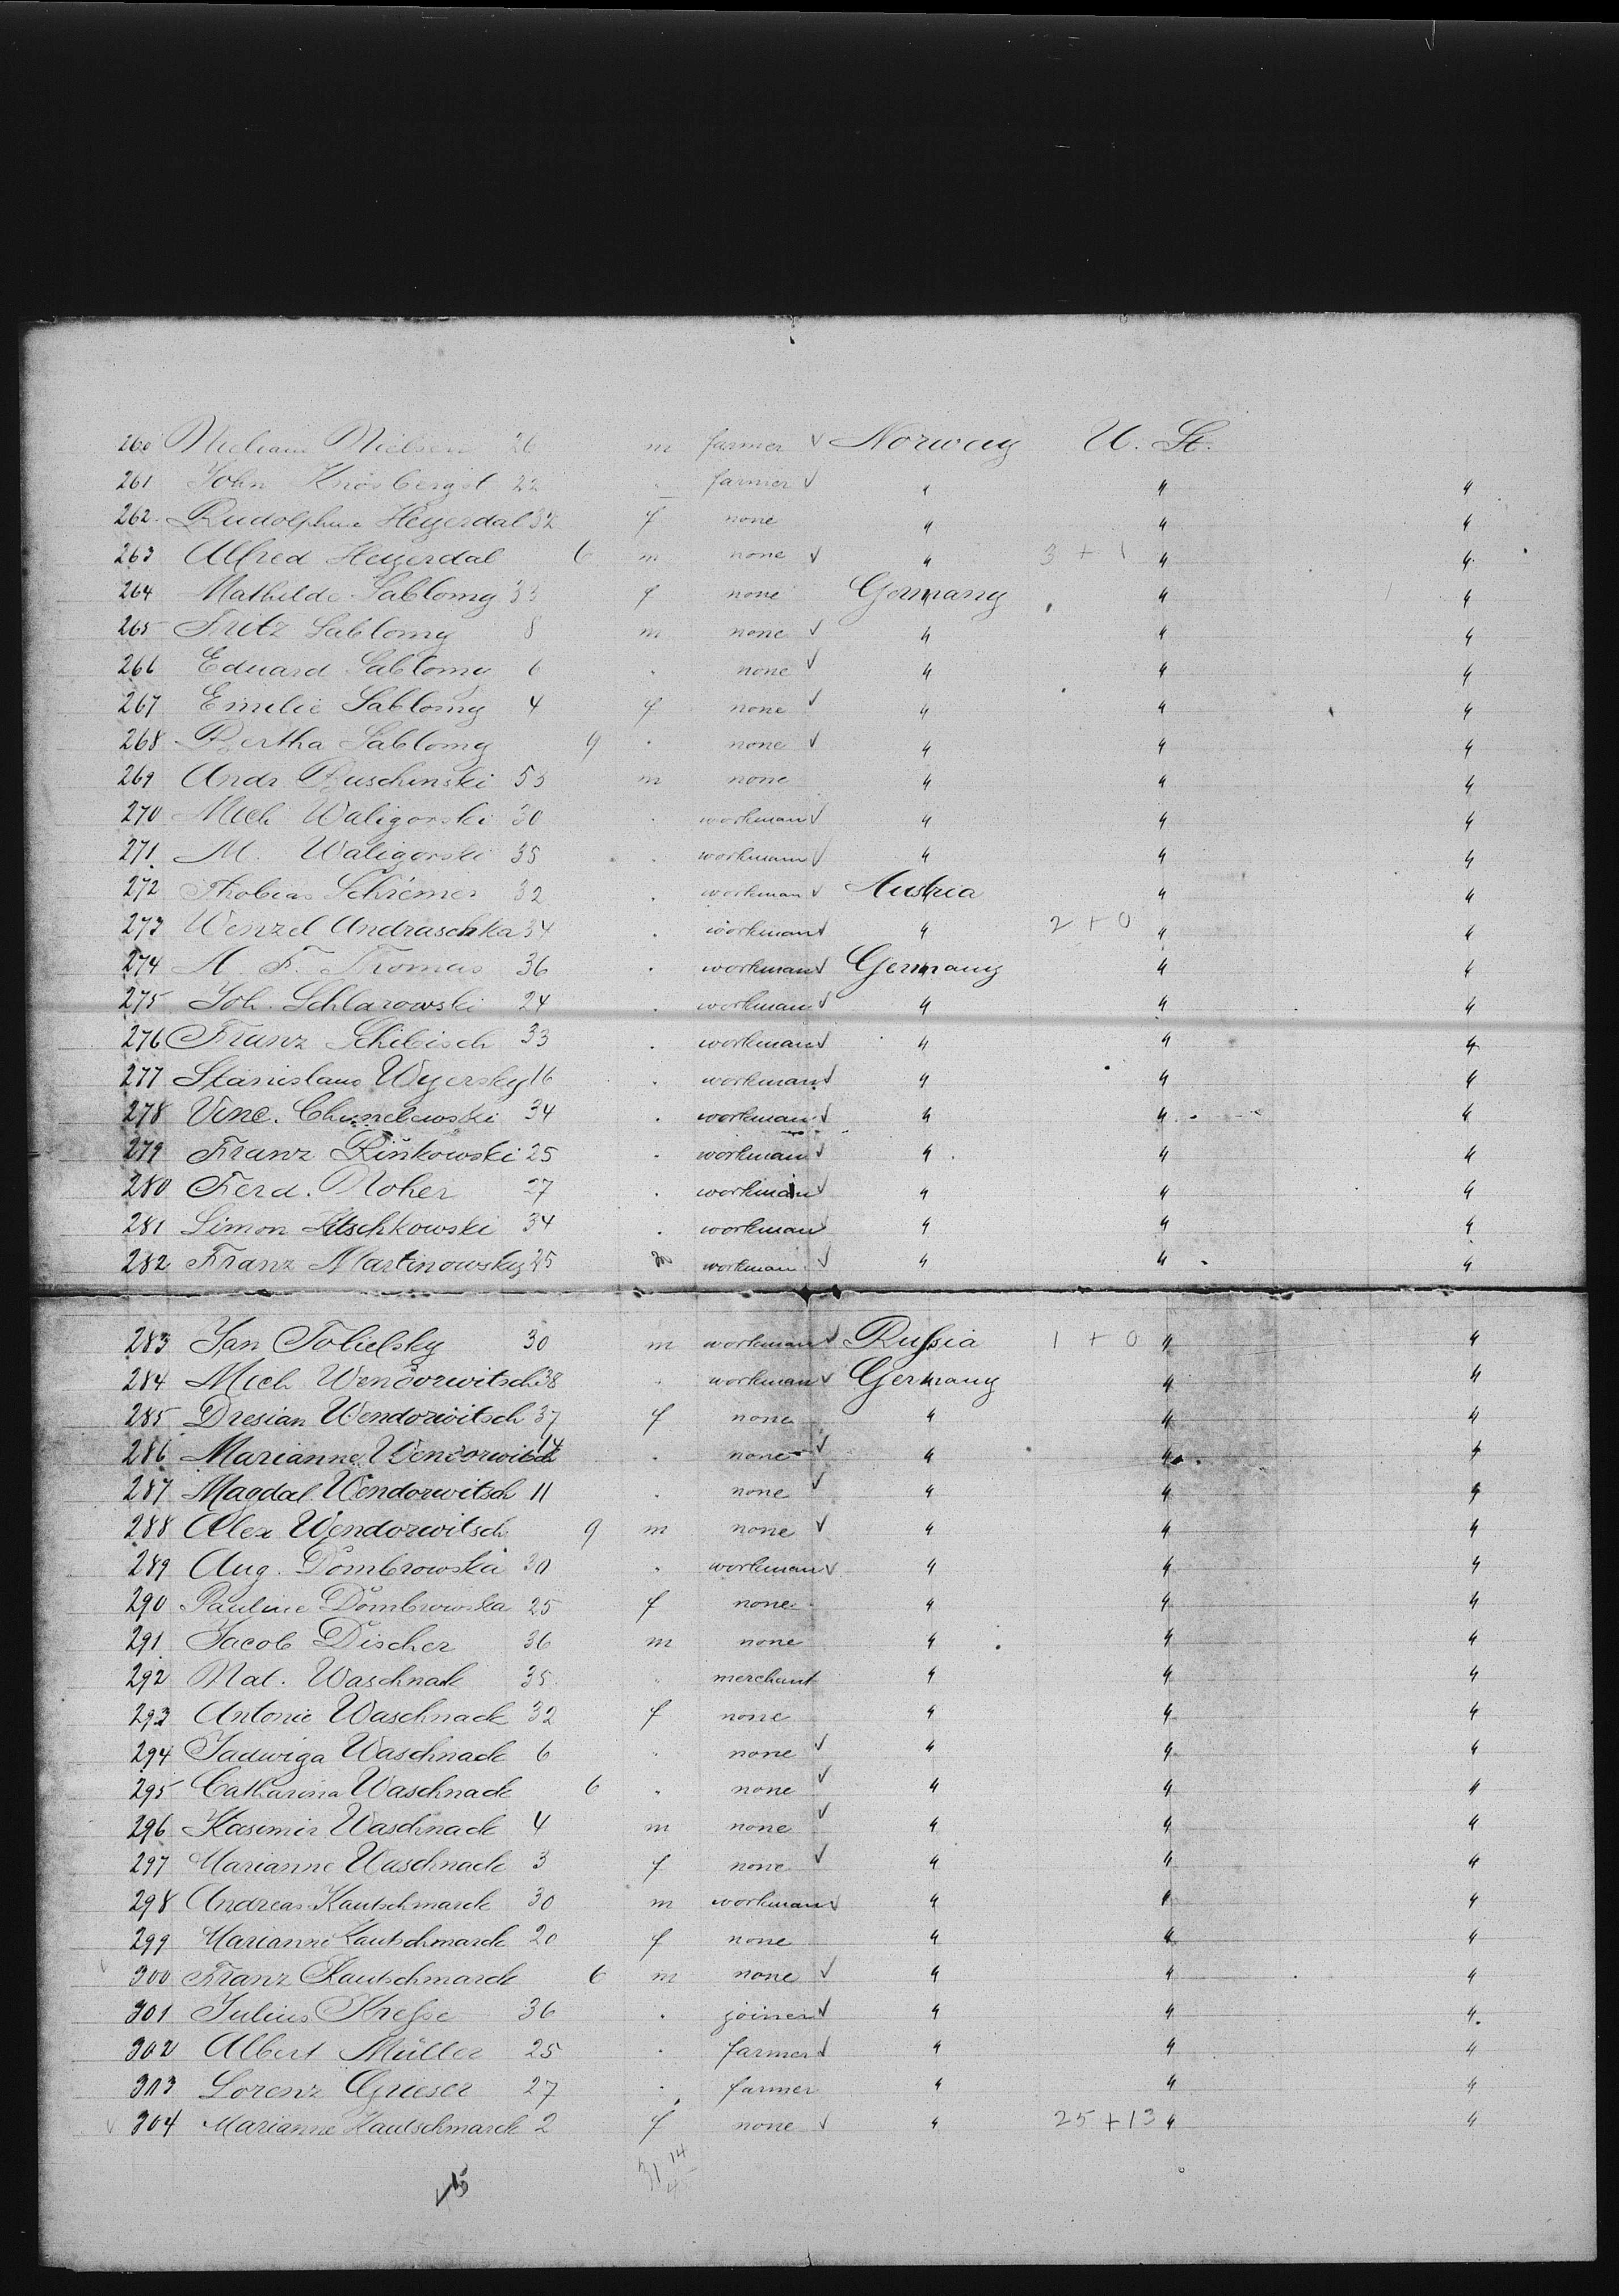 260 Nielsen 26 m farmer √ Norway U. St.
261 John 22 " farmer √ " " "
262. Heyerdal 32 f none " " "
263 Alfred Heyerdal 6 m none √ " 3 + 1 " "
264 Mathilde Sablomy 33 f none Germany " "
265 Fritz Sablomy 8 m none √ " " "
266 Eduard Sablomy 6 " none √ " " "
267 Emilie Sablomy 4 f none √ " " "
268 Bertha Sablomy 9 " none √ " " "
269 Andr. Buschinski 53 m none " " "
270 Mich Waligorski 30 " workman √ " " "
271 M. Waligorski 35 " workman √ " " "
272 Thobias 32 " workman √ Austria " "
273 Wenzel Andraschka 34 " workman √ " 2 + 0 " "
274 F. Thomas 36 " workman √ Germany " "
275 Joh. Schlarowski 24 " workman √ " " "
276 Franz Schibisch 33 " workman √ " " "
277 Stanislaus Wyersky 16 " workman √ " " "
278 Vinc. Chmelewski 34 " workman √ " " "
279 Franz Rinkowski 25 " workman √ " " "
280 Ferd. Noher 27 " workman √ " " "
281 Simon 34 " workman " " "
282 Franz Martinowsky 25 m workman √ " " "
283 Jan Tolielsky 30 m workman √ Russia 1 + 0 " "
284 Mich Wendorwitsch 38 " workman √ Germany " "
285 Dresian Wendorwitsch 37 f none " " "
286 Marianne Wendorwitsch 14 " none √ " " "
287 Magdal. Wendorwitsch 11 " none √ " " "
288 Alex Wendorwitsch 9 m none √ " " "
289 Aug. Dombrowska 30 " workman √ " " "
290 Pauline Dombrowska 25 f none " " "
291 Jacob Discher 36 m none " " "
292 Nat. Waschnack 35 " merchant " " "
293 Antonie Waschnack 32 f none " " "
294 Jadwiga Waschnack 6 " none √ " " "
295 Catharina Waschnack 6 " none √ " " "
296 Kasimir Waschnack 4 m none √ " " "
297 Marianne Waschnack 3 f none √ " " "
298 Andreas Kautschmarck 30 m workman √ " " "
299 Marianne Kautschmarck 20 f none " " "
√ 300 Franz Kautschmarck 6 m none √ " " "
301 Julius Kresse 36 " joiner √ " " "
302 Albert Müller 25 " farmer √ " " "
303 Lorenz Grieser 27 " farmer " " "
√ 304 Marianne Kautschmarck 2 f none √ " 25 + 13 " "
45 31 14